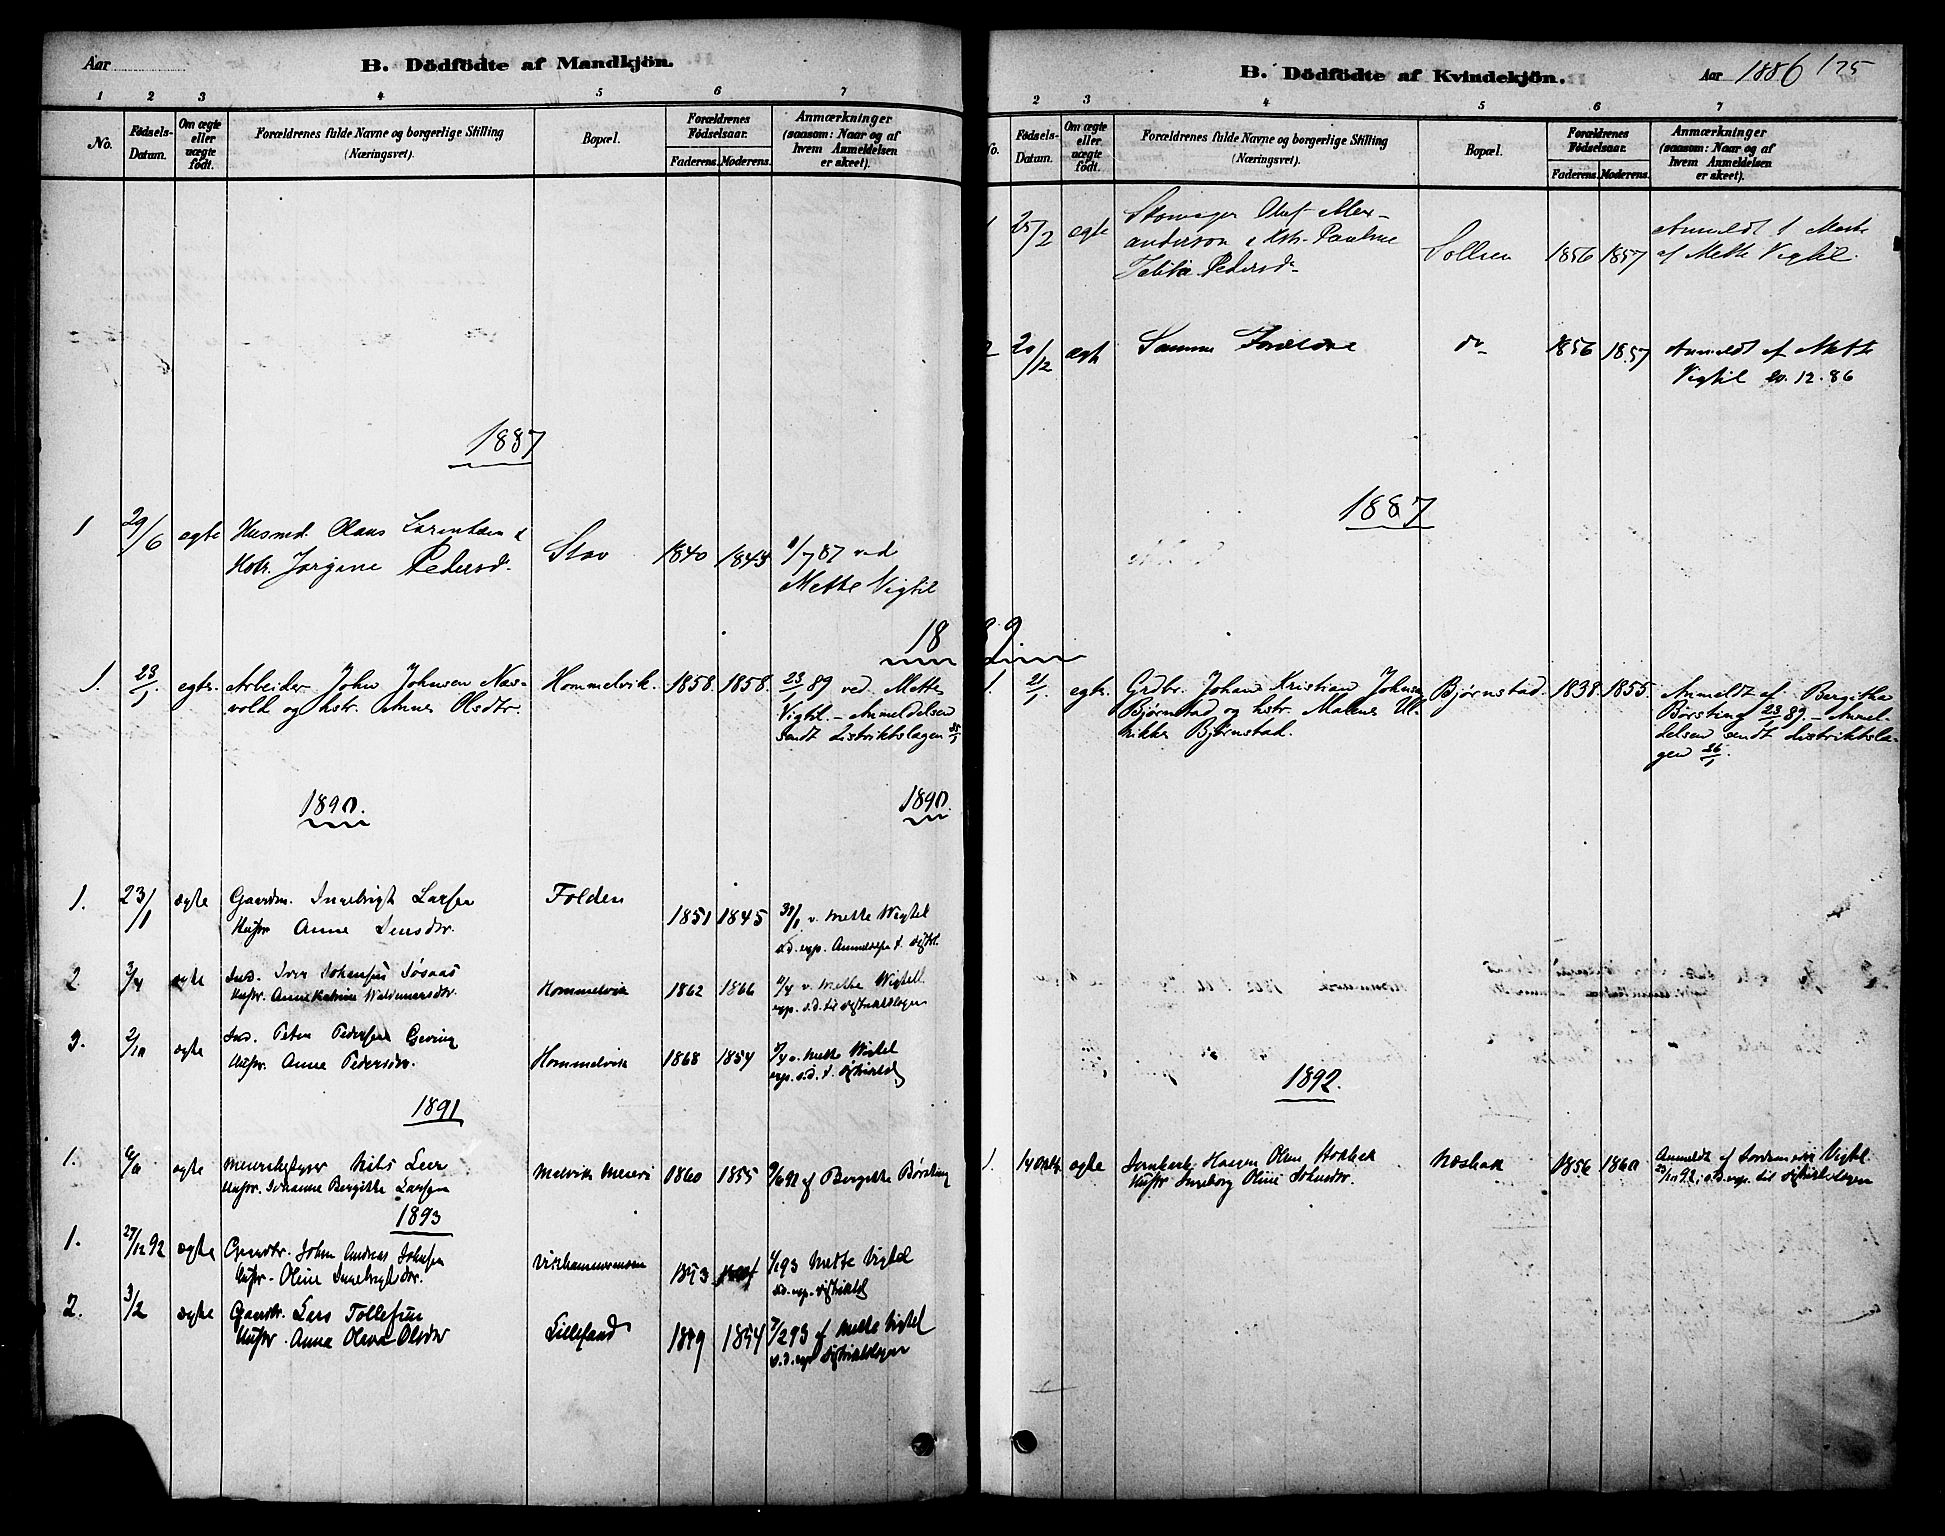 Aar
B. Dödfödte af Mandkjön.
1 2 3 4 5 6 7
No.
Födsels-
Datum.
Om ægte
eller
uægte
födt.
Forældrenes fulde Navne og borgerlige Stilling
(Næringsvei).
Bopæl.
Forældrenes
Födselsaar.
Faderens. Moderens.
Anmærkninger
(saasom: Naar og af
hvem Anmeldelsen
er skeet).
1887
1 29/6 egte Husmd. Olaus Lorentsen &
Hstr. Jørgine Pedersd.
Stav 1840 1843 1/7 87 ved
Mette Vigtil
1889.
1. 23/1 egte. Arbeider John Johnsen Næs-
vold og hstr. Anne Olsdtr.
Hommelvik. 1858. 1858. 23/1 89 ved Mette
Vigtil. – Anmeldelsen
sendt distriktslægen
1890.
1890.
1. 23/1 ægte Gaardm. Ingebrigt Larsen
Hustr Anne Jensdtr.
Folden 1851 1845 v. Mette Wigtel
2 3/4 ægte Ind. Iver Johansen
Hustr. Anne Katrine Waldemarsdtr.
Hommelvik 1862 1866 v. Mette Wigtell
exp. s.d. til distriktslægen
3. 2/10 ægte Ind. Peter Pedersen Geving
Hustr. Anne Pedersdtr.
Hommelvik 1868 1854 v. Mette Wigtel
exp. s.d. t. distriktslg
1891
1. ægte Meieribestyrer Nils Leer
Hustr. Johanne Bergitte Larsen
Melvik Meieri 1860 1855 af Bergitte Børsting
1893
1. 27/12 92 ægte Gaardbr. John Andreas Johnsen
Hustr. Oline Ingebrigtsdtr.
93 Mette Vigtel
2. 3/2 ægte Gaardbr. Lars Tollefsen
Hustr Anna Olava Olsdtr
1854 7/2 93 af Mette Vigtel
s.d. exp distriktslægen
B. Dödfödte af Kvindekjön.
Aar 1886 175
2 3 4 5 6 7
No.
Födsels-
Datum.
Om ægte
eller
uægte
födt.
Forældrenes fulde Navne og borgerlige Stilling
(Næringsvei).
Bopæl.
Forældrenes
Födselsaar.
Faderens. Moderens.
Anmærkninger
(saasom: Naar og af
hvem Anmeldelsen
er skeet).
1 25/2 egte Skomager Oluf Alex-
anderson & Hstr. Pauline
Pedersdr
1856 1857 Anmeldt 1 Marts
af Mette Vigtil.
2 20/12 ægte Samme Forældre do 1856 1857 Anmeldt af Mette
Vigtil 20.12.86
1887
1. 21/1 egte. Grdbr. Johan Kristian Johnsen
Bjørnstad og hstr. Malene Ul-
rikke Bjørnstad.
Bjørnstad. 1838. 1855. Anmeldt af Bergitha
Børsting 23/1 89. – Anmel-
delsen sendt distriktslæ-
gen 26/1.
1892.
1. 14 Oktbr ægte Olsen
Hustr Ingeborg Oline Johnsdtr.
1856 1860 Anmeldt af Jordemoder Vigtel
s.d. exp. til distriktslægen